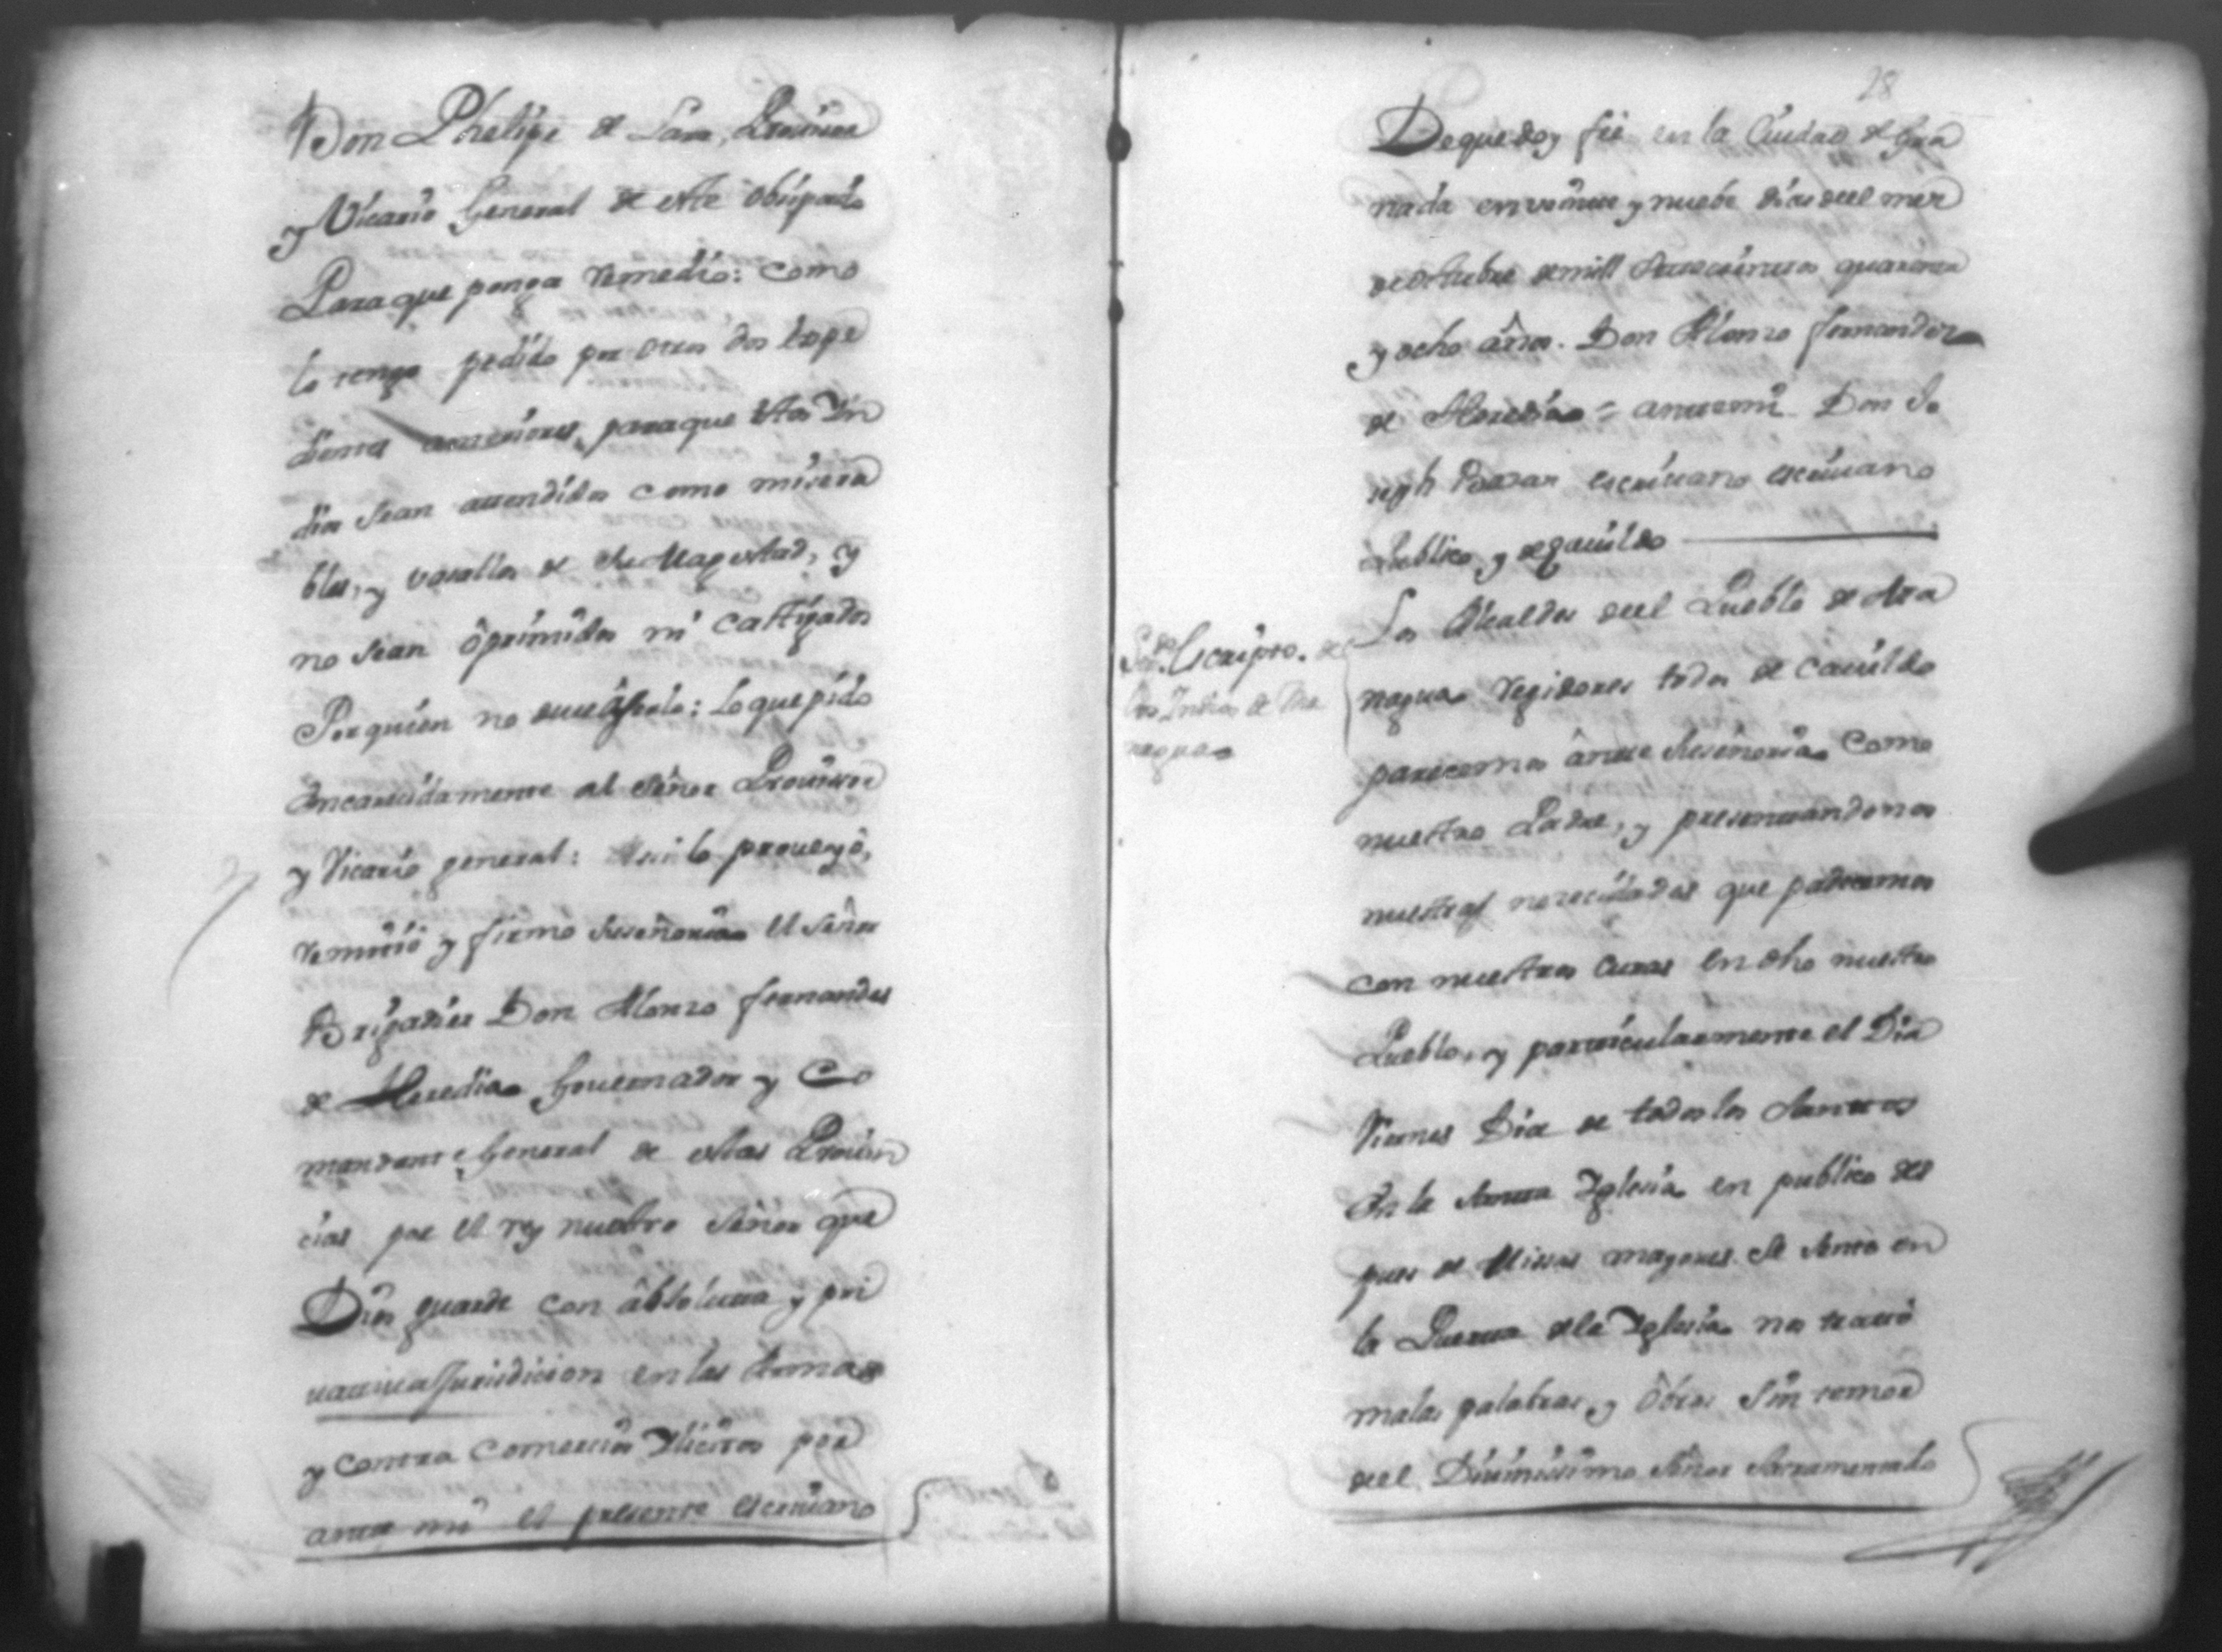 Don Phelipe de Lara, Prouisor
y Vicario General de este Obispado
Para que ponga remedio: como
lo tengo pedido por otros dos Expe
dientes anteriores, para que estos Yn
dios sean attendidos como misera
bles, y vasallos de Su Magestad, y
no sean oprimidos ni castigados
Por quien no deue haserlo: lo que pido
encarecidamente al Señor Prouisor
y Vicario general: Assi lo proueyò,
remitiò y firmo Suseñoria el Señor
Brigadier Don Alonzo fernandes
de Heredia Gouernador y Co
mandante General de estas Prouin
cias por el rey nuestro Señor que
Dios guarde con absoluta y pri
uatiua Jurisdicion en las Armas
y contra Comercios Ylicitos por
ante mi el presente escriuano
28
De que doy feè en la Ciudad de Gra
nada en veinte y nueue dias deel mes
de Octubre de mill Setecientos quarenta
y ocho años. Don Alonzo fernandez
de Heredia = antemi Don Jo
seph escriuano escriuano
Publico y de gauildo
Sdo. Escripto. de
los Indios de Ma
nagua
Los Alcaldes deel Pueblo de Ma
nagua Regidores todos de cauildo
parecemos ante Suseñoria como
nuestro Padre, y presentandonos
nuestras necesidades que padecemos
con nuestros Curas en dho nuestro
Pueblo, y particularmente el Dia
Viernes Dia de todos los Santos
En la Santa Yglesia en publico des
pues de Missas mayores. Se sento en
la Puerta de la Yglesia nos tratò
malas palabras, y Obras Sin temor
deel Diuinissimo Señor Sacramentado